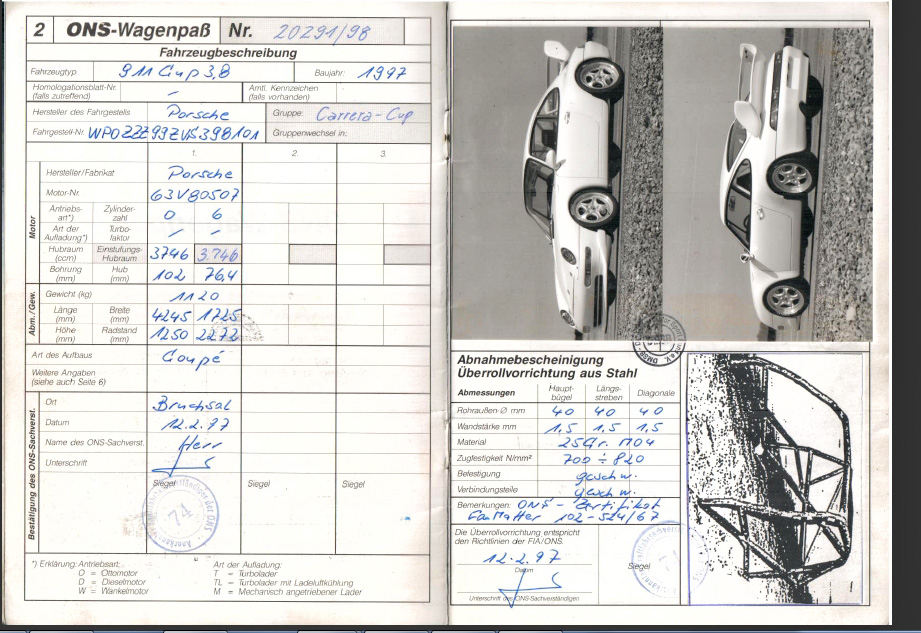 2 ONS-Wagenpaß Nr. 20291/98
Fahrzeugbeschreibung
Fahrzeugtyp 911 Cup 3,8 Baujahr: 1997
Homologationsblatt-Nr. (falls zutreffend) – Amtl. Kennzeichen (falls vorhanden)
Hersteller des Fahrgestells Porsche Gruppe: Carrera-Cup
Fahrgestell-Nr. WP0ZZZ99ZVS398101 Gruppenwechsel in:
1. 2. 3.
Motor
Hersteller/Fabrikat Porsche
Motor-Nr. 63V80507
Antriebsart*) Zylinderzahl 0 6
Art der Aufladung*) Turbofaktor – –
Hubraum (ccm) Einstufungs-Hubraum 3746 3.746
Bohrung (mm) Hub (mm) 102 76,4
Abm./Gew.
Gewicht (kg) 1120
Länge (mm) Breite (mm) 4245 1725
Höhe (mm) Radstand (mm) 1250 2272
Art des Aufbaus Coupé
Weitere Angaben (siehe auch Seite 6)
Bestätigung des ONS-Sachverst.
Ort Bruchsal
Datum 12.2.97
Name des ONS-Sachverst. Herr
Unterschrift
Siegel Siegel Siegel
74
*) Erklärung: Antriebsart: Art der Aufladung:
O = Ottomotor T = Turbolader
D = Dieselmotor TL = Turbolader mit Ladeluftkühlung
W = Wankelmotor M = Mechanisch angetriebener Lader
Abnahmebescheinigung
Überrollvorrichtung aus Stahl
Abmessungen Hauptbügel Längsstreben Diagonale
Rohraußen-Ø mm 40 40 40
Wandstärke mm 1,5 1,5 1,5
Material 25 Cr. MO4
Zugfestigkeit N/mm² 700 ÷ 820
Befestigung geschw.
Verbindungsteile geschw.
Bemerkungen: ONS - Zertifikat
102-524/67
Die Überrollvorrichtung entspricht
den Richtlinien der FIA/ONS.
12.2.97
Datum
Siegel
74
Unterschrift des ONS-Sachverständigen